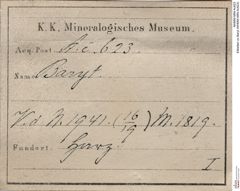 K. K. Mineralogisches Museum.
Acq. Post A. i. 623.
Name Baryt.
V. d. N. 1041. (16/19) M. 1819.
Fundort: Harz.
I